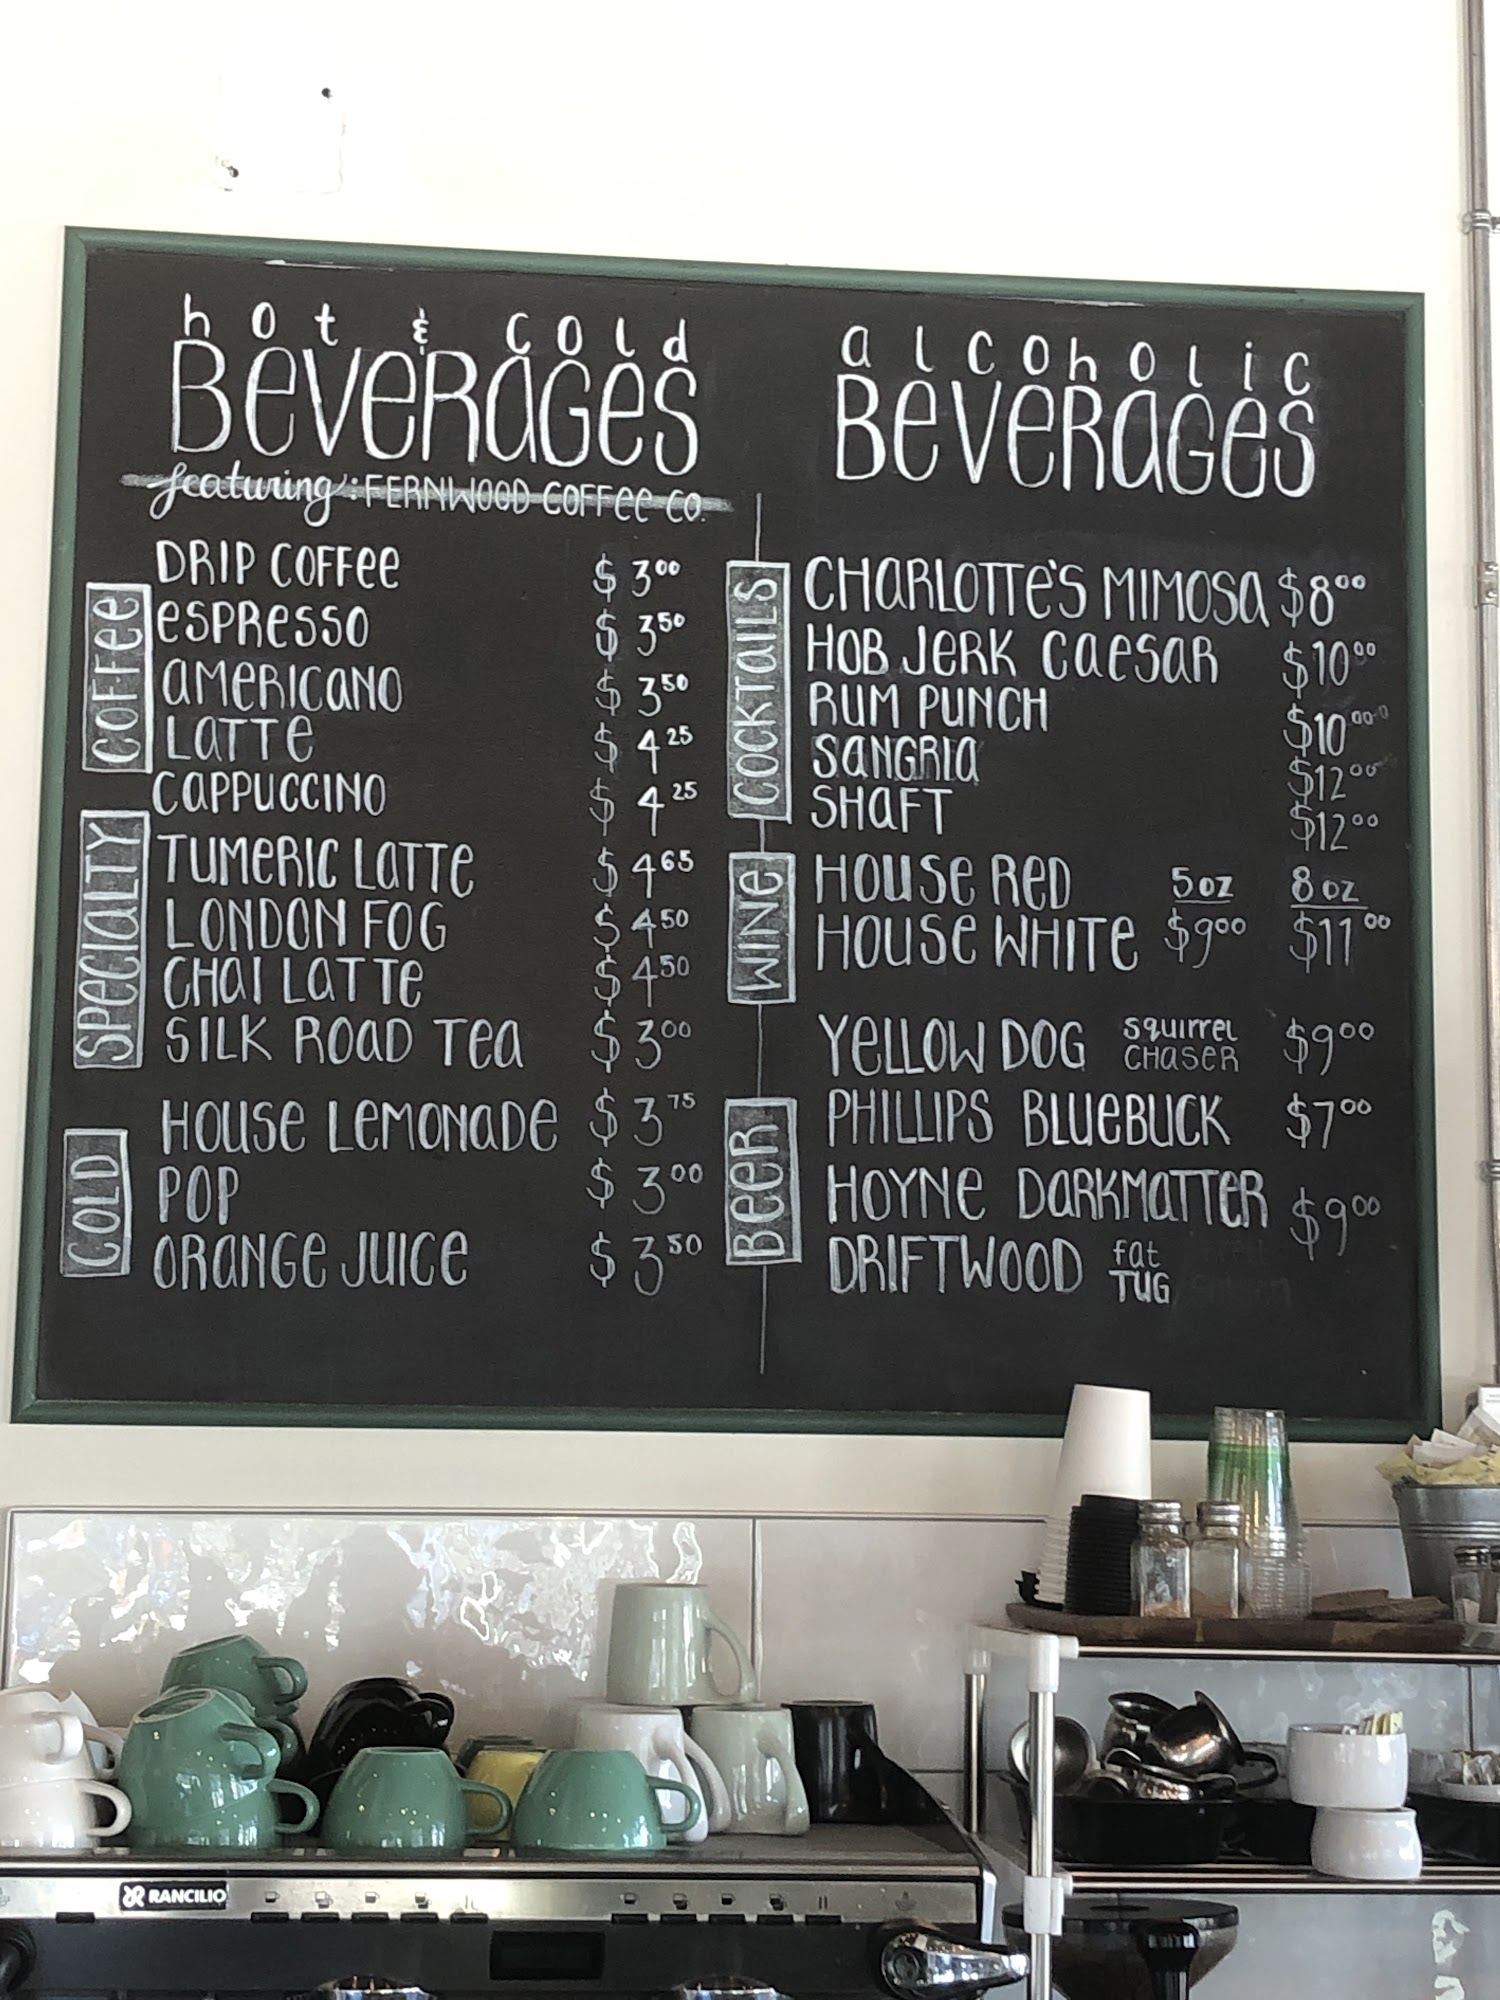 hot & cold
BEVERAGES
featuring: FERNWOOD COFFEE CO.
COFFEE
DRIP COFFEE $3.00
ESPRESSO $3.50
AMERICANO $3.50
LATTE $4.25
CAPPUCCINO $4.25
SPECIALTY
TUMERIC LATTE $4.65
LONDON FOG $4.50
CHAI LATTE $4.50
SILK ROAD TEA $3.00
COLD
HOUSE LEMONADE $3.75
POP $3.00
ORANGE JUICE $3.50
alcoholic
BEVERAGES
COCKTAILS
CHARLOTTE'S MIMOSA $8.00
HOB JERK CAESAR $10.00
RUM PUNCH $10.00
SANGRIA $12.00
SHAFT $12.00
WINE
HOUSE RED 5oz 8oz
HOUSE WHITE $9.00 $11.00
BEER
YELLOW DOG squirrel CHASER $9.00
PHILLIPS BLUEBUCK $7.00
HOYNE DARKMATTER $9.00
DRIFTWOOD fat TUG
RANCILIO